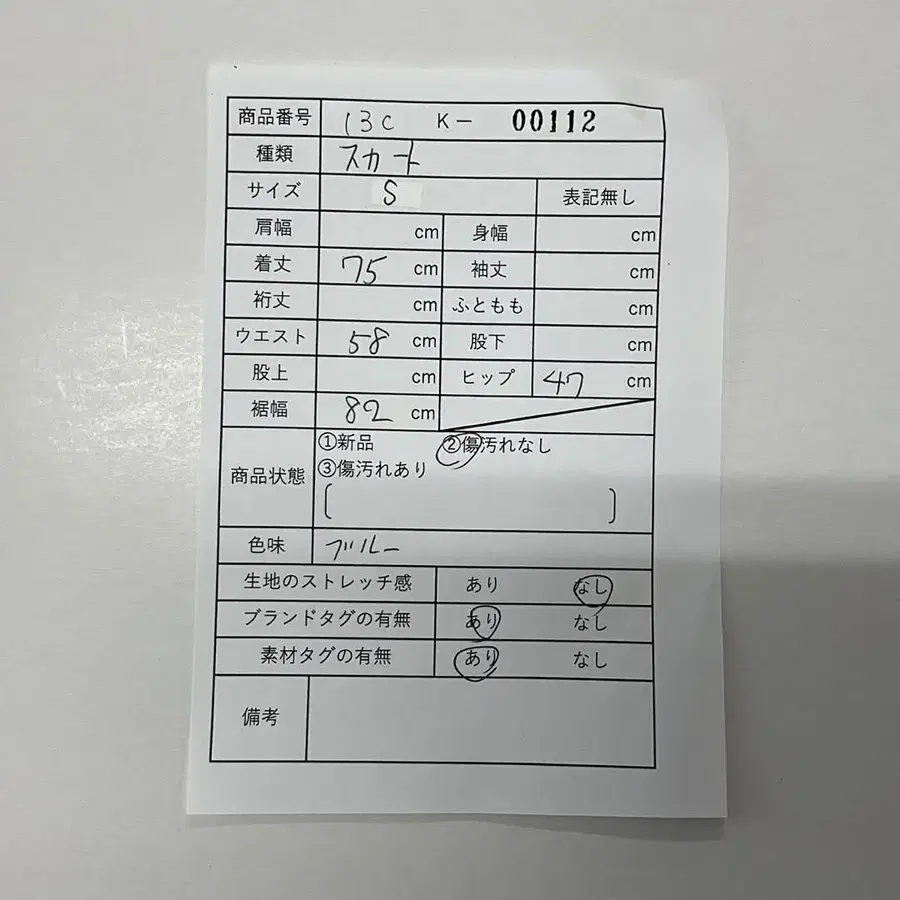 商品番号 13C K- 00112
種類 スカート
サイズ S 表記無し
肩幅 cm 身幅 cm
着丈 75 cm 袖丈 cm
裄丈 cm ふともも cm
ウエスト 58 cm 股下 cm
股上 cm ヒップ 47 cm
裾幅 82 cm
商品状態 ①新品 ②傷汚れなし
③傷汚れあり
[ ]
色味 ブルー
生地のストレッチ感 あり なし
ブランドタグの有無 あり なし
素材タグの有無 あり なし
備考